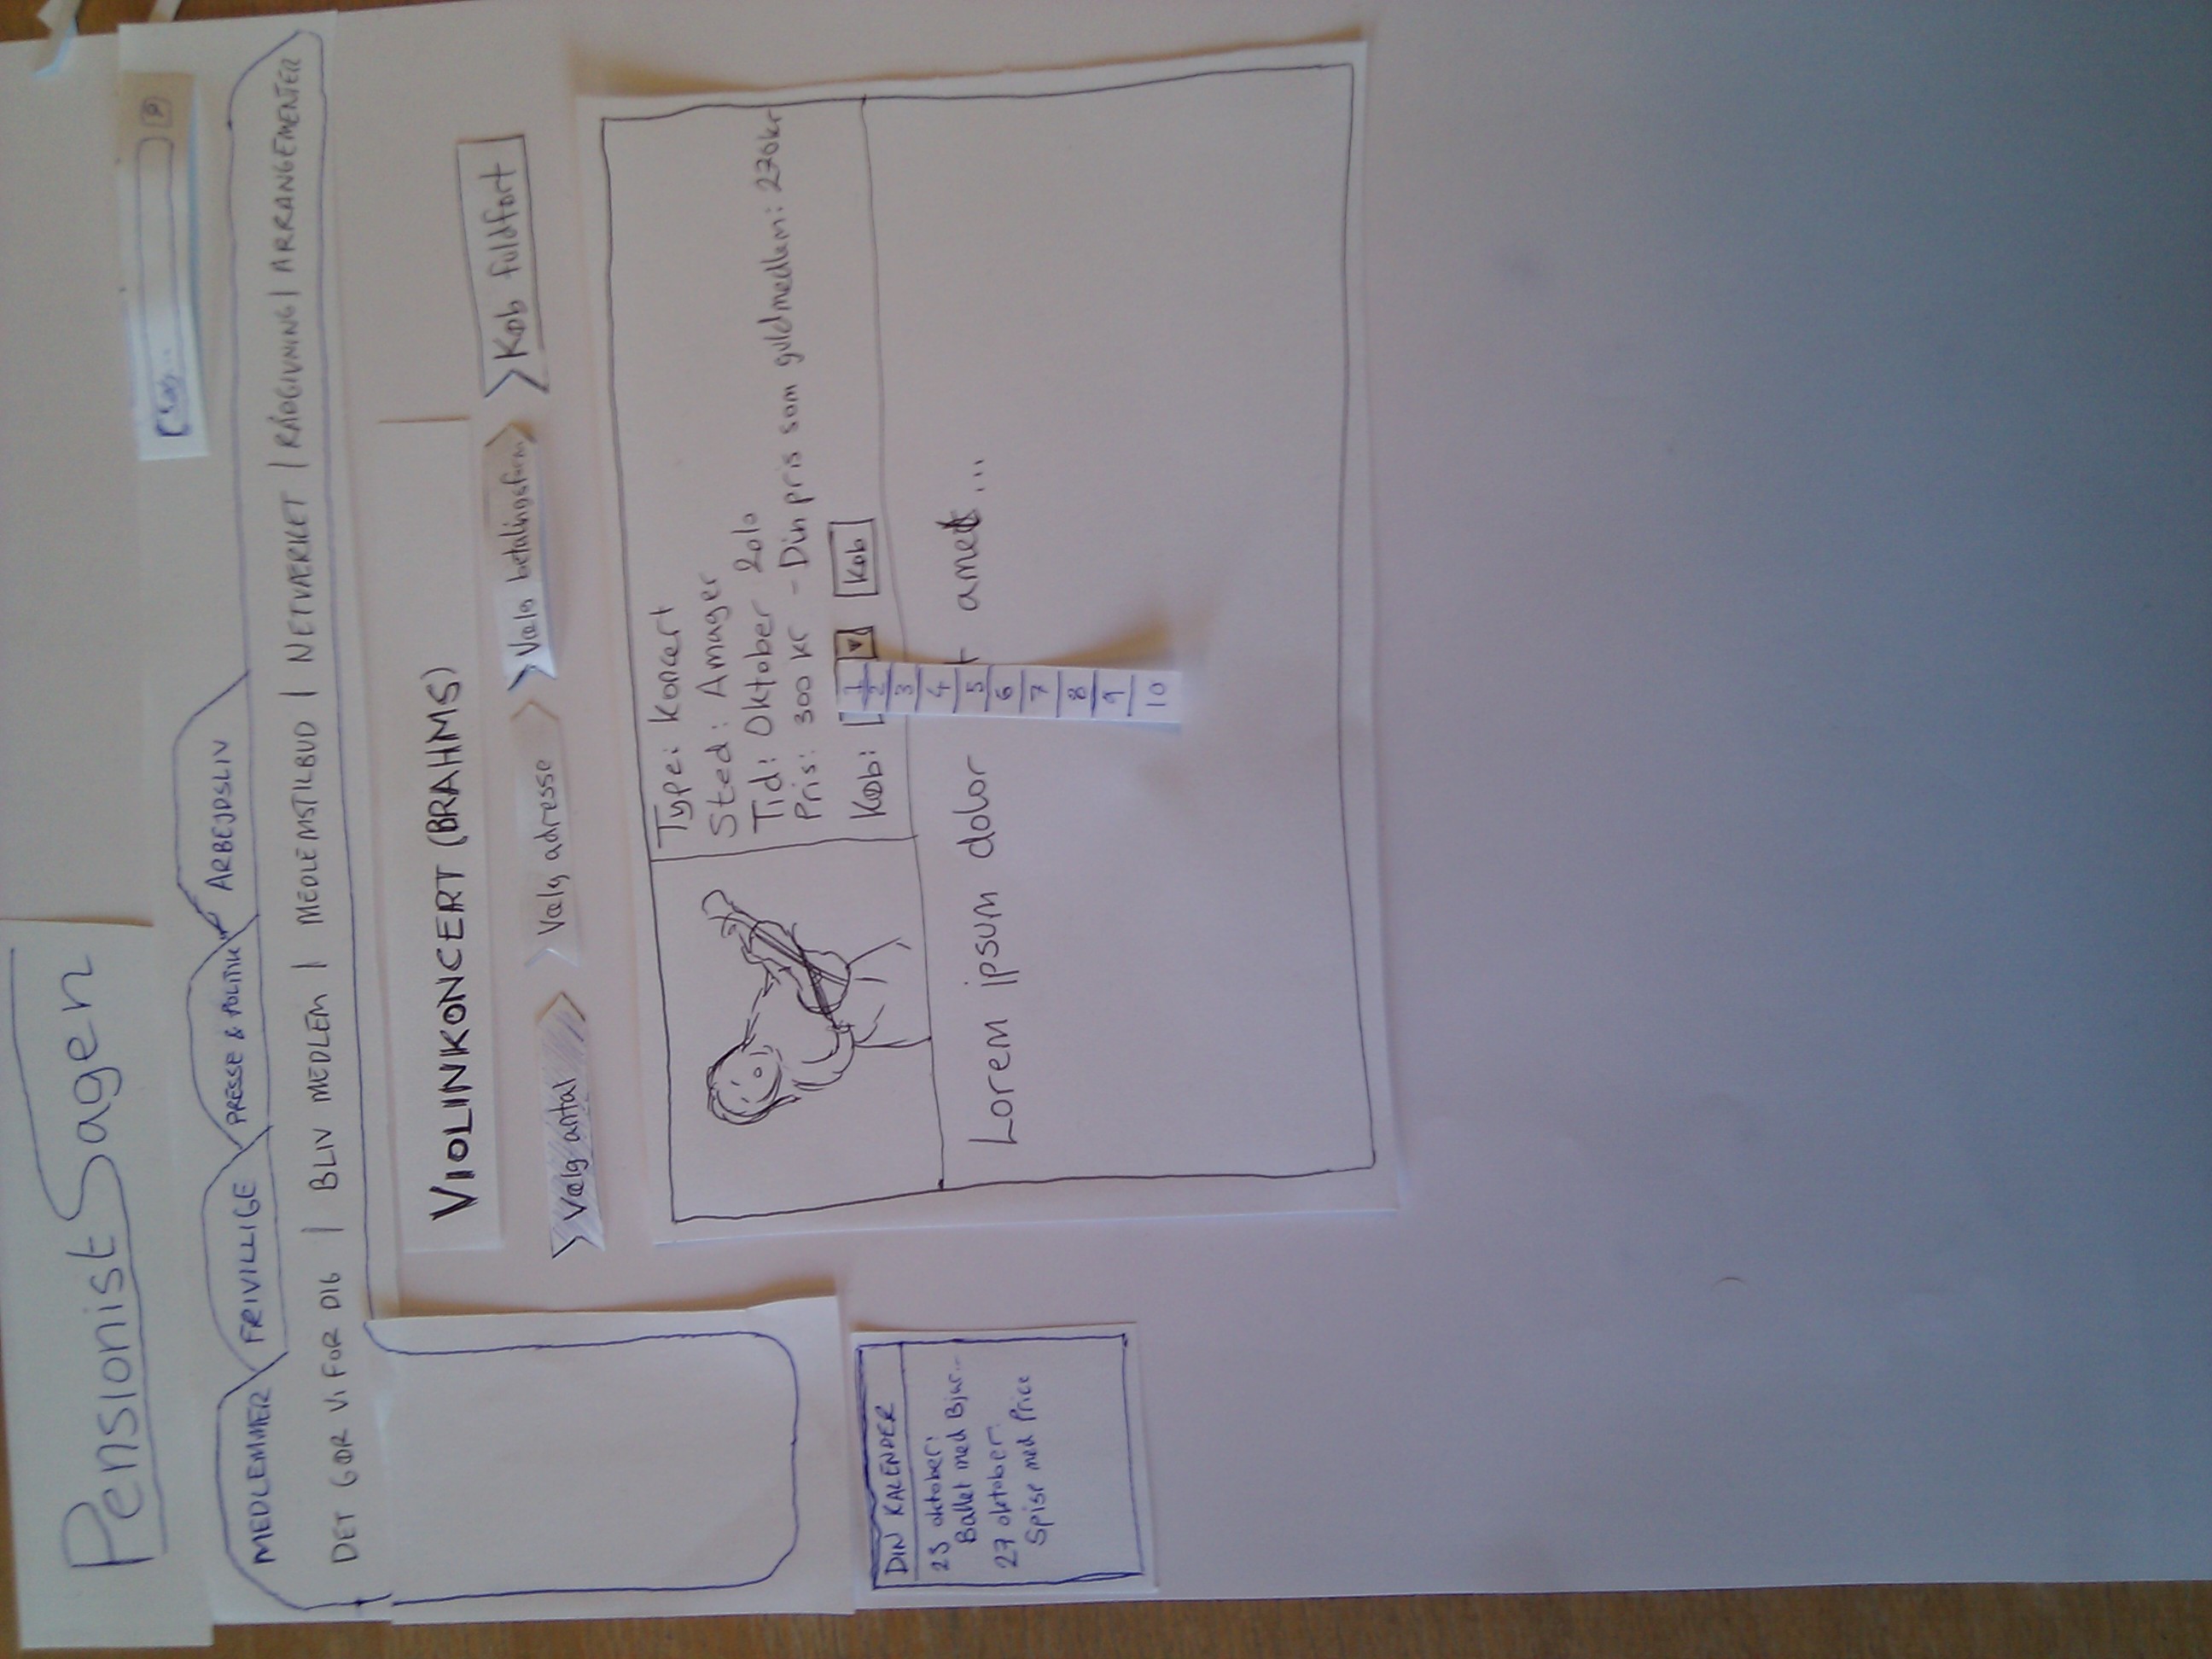 PensionistSagen
Søg...
MEDLEMMER
FRIVILLIGE
PRESSE & POLITIK
ARBEJDSLIV
DET GØR VI FOR DIG | BLIV MEDLEM | MEDLEMSTILBUD | NETVÆRKET | RÅDGIVNING | ARRANGEMENTER
VIOLINKONCERT (BRAHMS)
Vælg antal
Vælg adresse
Vælg betalingsform
Køb fuldført
Type: Koncert
Sted: Amager
Tid: Oktober 2010
Pris: 300 kr - Din pris som guldmedlem: 270kr
Køb:
Køb
1
2
3
4
5
6
7
8
9
10
Lorem ipsum dolor
amet...
DIN KALENDER
23 oktober:
Ballet med Bjar...
27 oktober:
Spise med Price